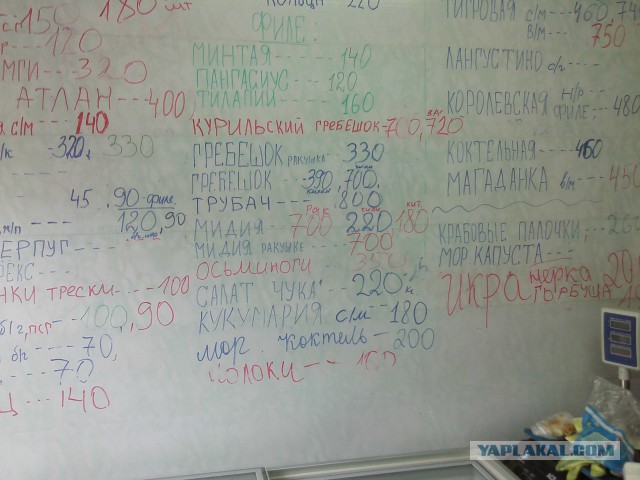 150 180 шт
120
320
АТЛАН---400
с/м---140
/к -320, 330
45 90 филе
м/п ---- 120,90
ЕРПУГ----
ЕКС----
НКИ ТРЕСКИ----100
б/г, псг---100,90
б/г ---70,
---70
Ц...140
КОЛЬЦА 220
ФИЛЕ.
МИНТАЯ-----140
ПАНГАСИУС---120
ТИЛАПИИ----160
КУРИЛЬСКИЙ ГРЕБЕШОК-700,720
ГРЕБЕШОК РАКУШКА-330
ГРЕБЕШОК -390,700,
ТРУБАЧ---- 800
МИДИЯ 700 220 180 КИТ.
МИДИЯ РАКУШКЕ 700
ОСЬМИНОГИ
САЛАТ ЧУКА 220
КУКУМАРИЯ С/М-180
МОР. КОКТЕЛЬ-200
ТИГРОВАЯ С/М---460,
В/М---750
ЛАНГУСТИНО
КОРОЛЕВСКАЯ Н/Р
ФИЛЕ,-480
КОКТЕЛЬНАЯ--- 460
МАГАДАНКА В/М---450
КРАБОВЫЕ ПАЛОЧКИ,
МОР.КАПУСТА----
ИКРА НЕРКА
ГОРБУША
YAPLAKAL.COM